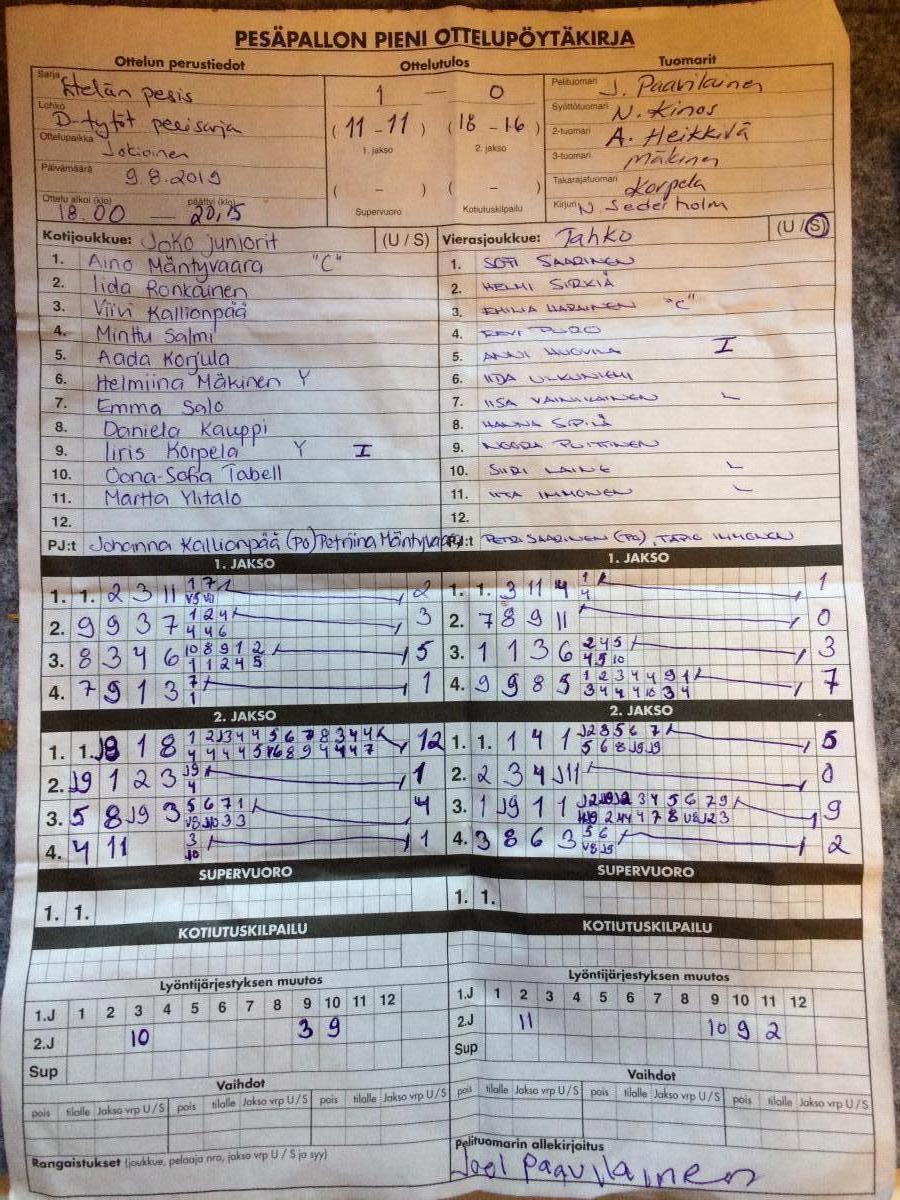 PESÄPALLON PIENI OTTELUPÖYTÄKIRJA
Ottelun perustiedot Ottelutulos Tuomarit
Sarja Etelän pesis 1 — 0 Pelituomari J. Paavilainen
Lohko D-tytöt perisarja (11 - 11) (18 - 16) Syöttötuomari N. Kinos
Ottelupaikka Jokioinen 1. jakso 2. jakso 2-tuomari A. Heikkivä
3-tuomari Mäkinen
Päivämäärä 9.8.2019 ( - ) ( - ) Takarajatuomari Korpela
Ottelu alkoi (klo) 18.00 — päättyi (klo) 20,15 Supervuoro Kotiutuskilpailu Kirjuri N. Sederholm
Kotijoukkue: Joko juniorit (U / S) Vierasjoukkue: Tahko (U / S)
1. Aino Mäntyvaara "C" 1. SOFI SAARINEN
2. Iida Ronkainen 2. HELMI SIRKIÄ
3. Viivi Kallionpää 3. "C"
4. Minttu Salmi 4.
5. Aada Korjula 5. ANNI HUOVILA I
6. Helmiina Mäkinen Y 6. IIDA ULKUNIEMI
7. Emma Salo 7. IISA VAINIKAINEN L
8. Daniela Kauppi 8. HANNA SIPILÄ
9. Iiris Korpela Y I 9. NOORA PUITTINEN
10. Oona-Sofia Tabell 10. SIIRI LAINE L
11. Martta Ylitalo 11. IITA IMMONEN L
12. 12.
PJ:t Johanna Kallionpää (PO) Petriina Mäntyvaara PJ:t PETRI SAARINEN (PO), TAPIO IMMONEN
1. JAKSO 1. JAKSO
1. 1. 2 3 11 1 7 2 1. 1. 3 11 4 1 1
V5 VII 4
2. 9 9 3 7 1 2 4 3 2. 7 8 9 11 0
4 4 6
3. 8 3 4 6 10 8 9 1 2 5 3. 1 1 3 6 2 4 5 3
1 1 2 4 5 4 5 10
4. 7 9 1 3 7 1 4. 9 9 8 5 1 2 3 4 4 9 1 7
1 3 4 4 4 10 3 4
2. JAKSO 2. JAKSO
1. 1. J9 1 8 1 2 J3 4 4 5 6 7 8 3 4 4 12 1. 1. 1 4 1 J2 8 5 6 7 5
5 6 8 J9 J9
2. J9 1 2 3 J9 1 2. 2 3 4 J11 0
4
3. 5 8 J9 3 5 6 7 1 4 3. 1 J9 1 1 9
V8 J10 3 3
4. 4 11 3 1 4. 3 8 6 3 5 6 2
J10 V8 J9
SUPERVUORO SUPERVUORO
1. 1. 1. 1.
KOTIUTUSKILPAILU KOTIUTUSKILPAILU
Lyöntijärjestyksen muutos Lyöntijärjestyksen muutos
1.J 1 2 3 4 5 6 7 8 9 10 11 12 1.J 1 2 3 4 5 6 7 8 9 10 11 12
2.J 10 3 9 2.J 11 10 9 2
Sup Sup
Vaihdot Vaihdot
pois tilalle Jakso vrp U / S pois tilalle Jakso vrp U / S pois tilalle Jakso vrp U / S pois tilalle Jakso vrp U / S pois tilalle Jakso vrp U / S pois tilalle Jakso vrp U / S
Rangaistukset (joukkue, pelaaja nro, jakso vrp U / S ja syy) Pelituomarin allekirjoitus
Joel Paavilainen